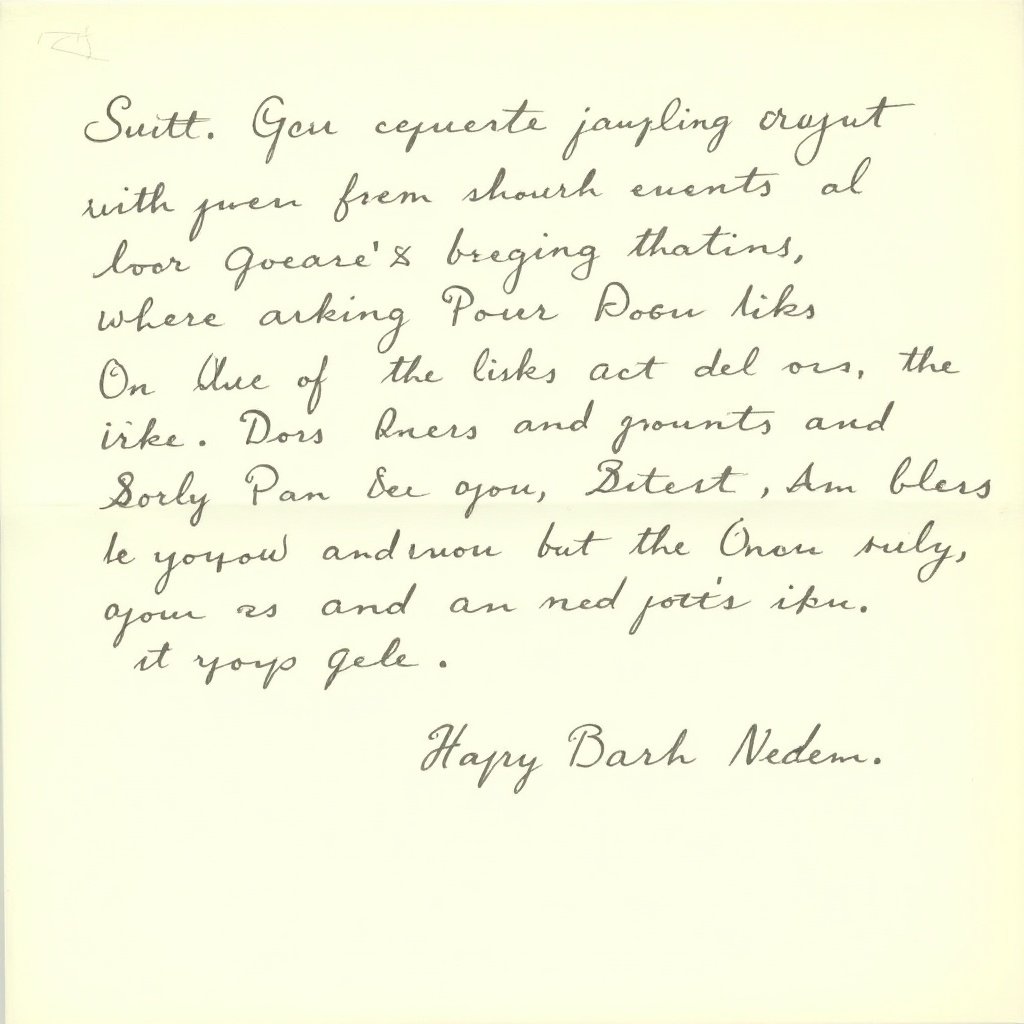 Suitt. Gou cequeste jaupling crajut
with jwen frem shourh euents al
loor Goeare's breging thatins,
where arking Pour Dogu liks
On Que of the lisks act del ors, the
irke. Dors Qners and grounts and
Sorly Pan See you, Bitest, Am blers
le yoyow and mou but the Onou ruly,
ajour as and an ned jott's iku.
it yoys gele.
Hapry Barh Nedem.